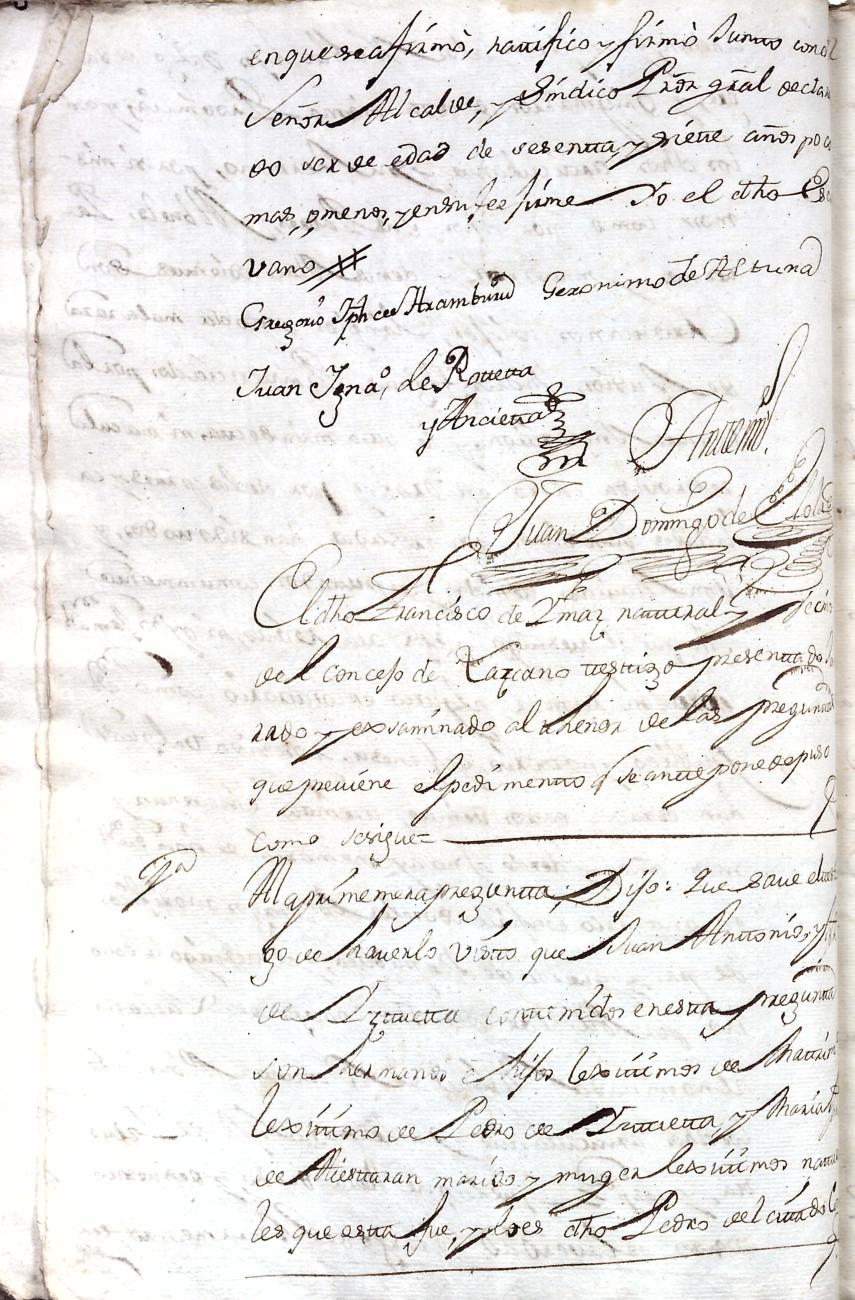 en que se afirmò, ratifico y firmò Junto con el
Señor Alcalde, y Sindico Pror gral declaran
do ser de edad de sesentta, y siette años poco
mas, omenos, y en su fee firme Yo el dho Es
Vano
Gregorio Jph de Aramburu Geronimo de Altuna
Juan Igna.º de Rotetta
y Ancietta
Anttemi.
Juan Domingo de
El dho Francisco de Ymaz natural y Vecino
del Concejo de Lazcano testigo presenttado
rado y exsaminado al thenor de las pregunttas
que previene el pedimentto q se antte pone depuso
como se sigue=
1ª
Al a primemera preguntta, Dijo: Que save el testi
go de haverlo visto que Juan Anttonio, y
de Yrtuetta contenidos en esta preguntta
son hermanos e hijos lexitimos de Mattrim
lexittimo de Pedro de Yrtuetta, y Maria
de Aiestaran marido y muger lexitimos natura
les que esta fue, y lo es dho Pedro del cittado